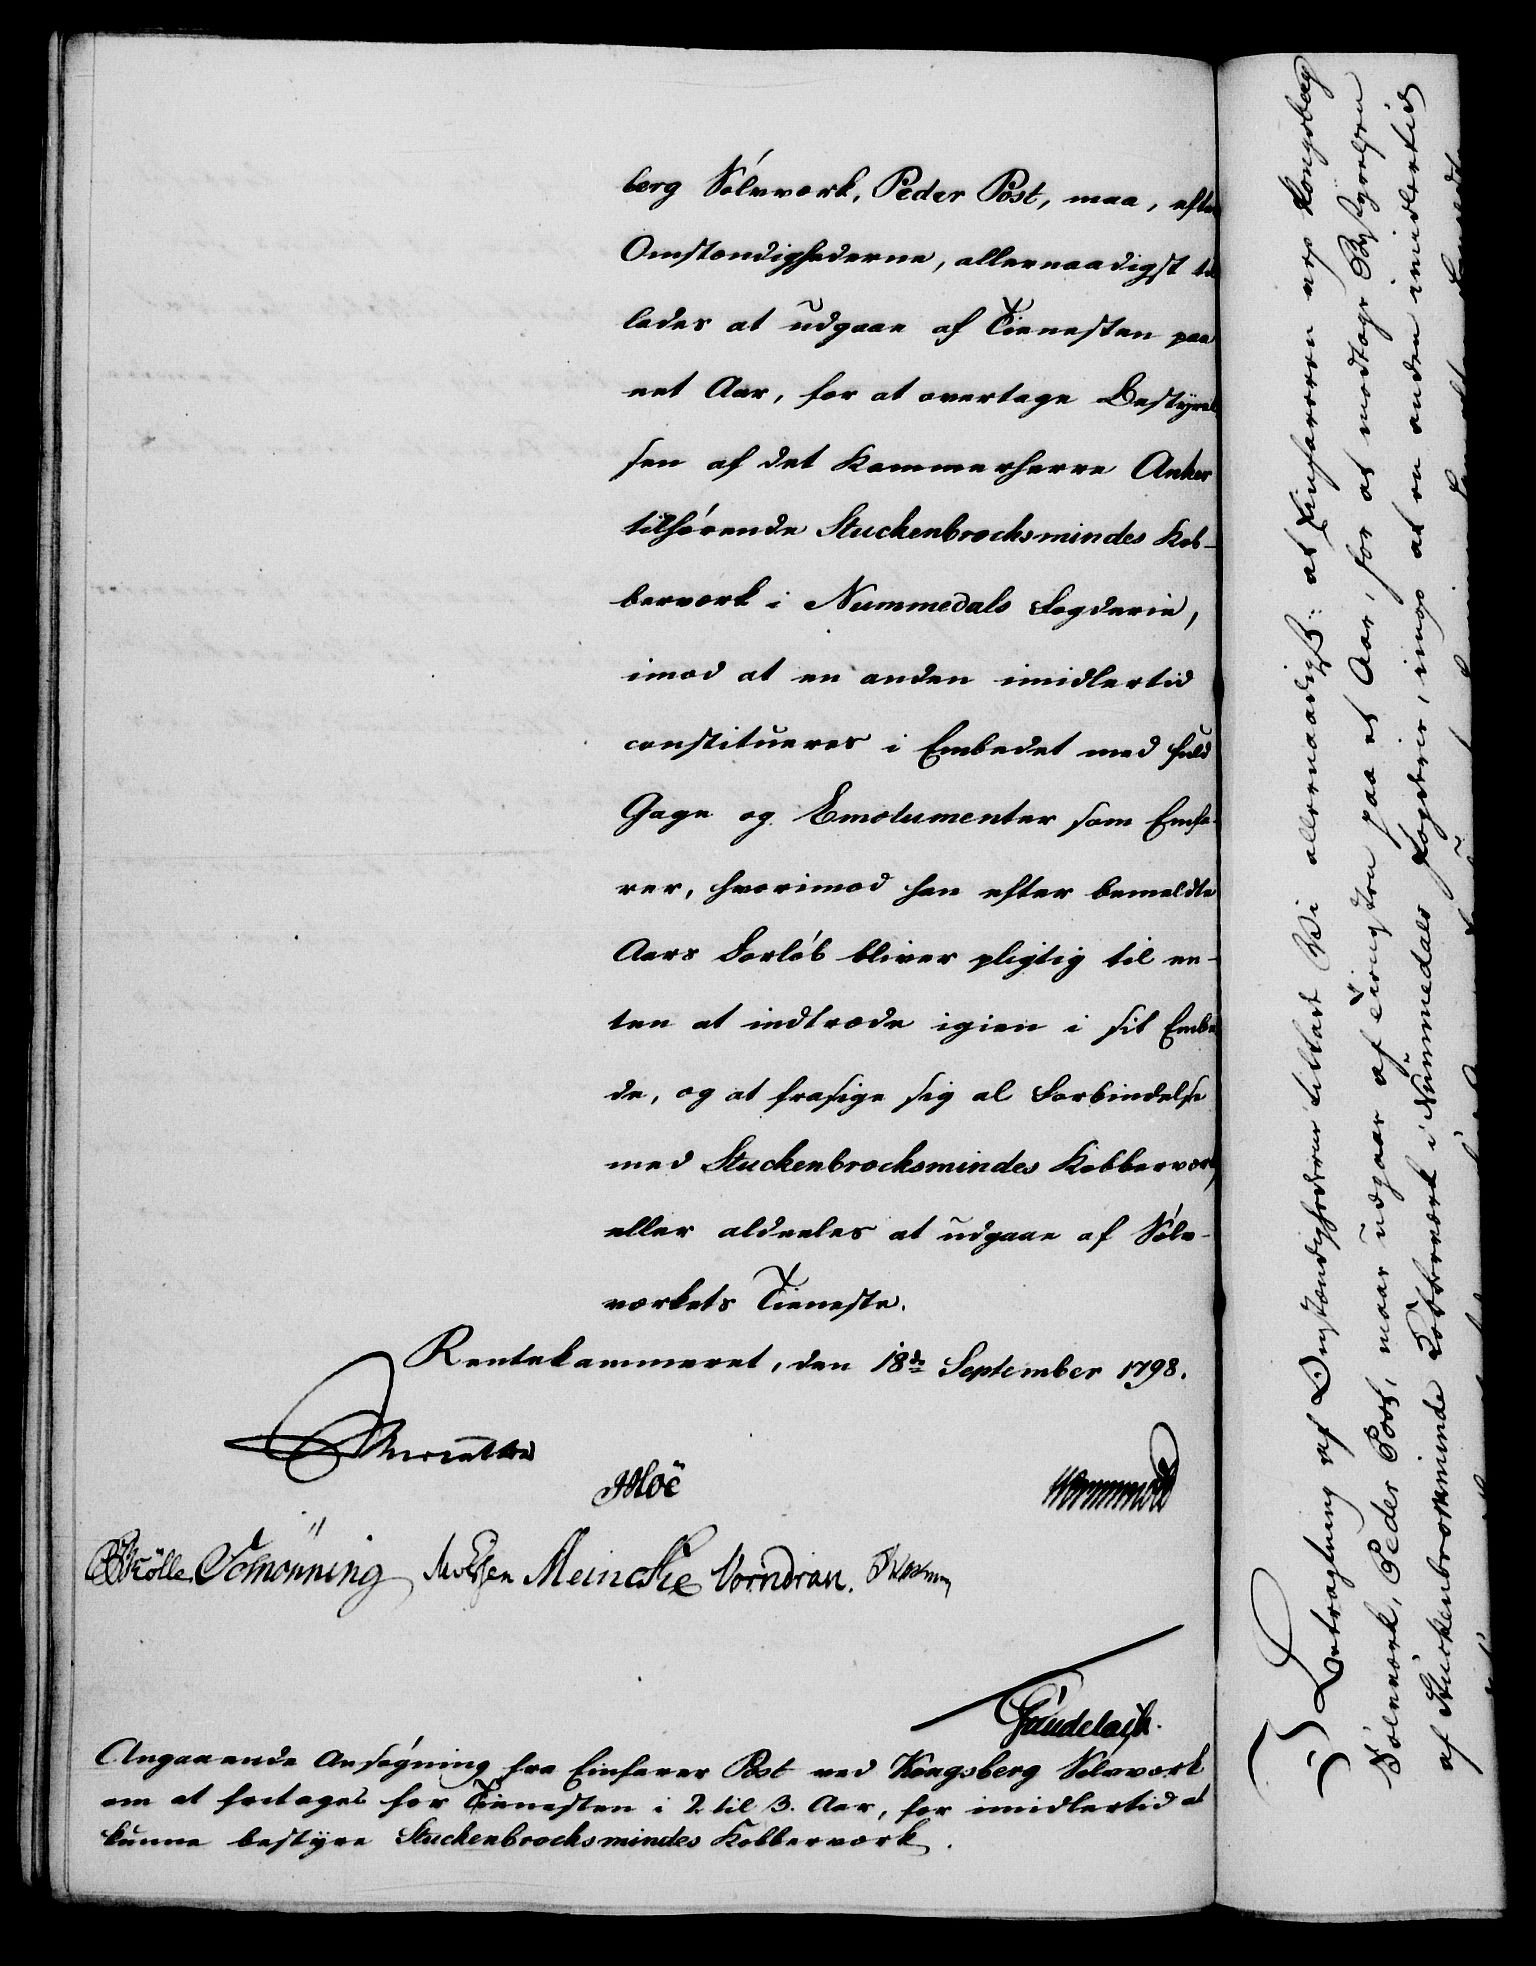 berg Sølvværk, Peder Post, maa, efter
Omstændighederne, allernaadigst til
lades at udgaae af Tienesten paa
eet Aar, for at overtage Bestyrel
sen af det Kammerherre Anker
tilhørende Stuckenbrocksmindes Kob-
berværk i Nummedals Fogderie,
imod at en anden imidlertid
constitueres i Embedet med fuld
Gage og Emolumenter som Einfa-
rer, hvorimod han efter bemeldte
Aars Forløb bliver pligtig til en-
ten at indtræde igien i sit Embe
de, og at frasige sig al Forbindelse
med Stuckenbrocksmindes Kobberværk,
eller aldeeles at udgaae af Sølv-
værkets Tieneste.
Rentekammeret, den 18de September 1798.
Moë
Hammond
Schønning Meincke Vorndran.
Gaudelach.
Angaaende Ansøgning fra Einfarer Post ved Kongsberg Sølvværk
om at fritages for Tienesten i 2 til 3. Aar, for imidlertid at
kunne bestyre Stuckenbrocksmindes Kobberværk.
I Betragtning af Omstændighederne tillade Vi allernaadigst: at Einfareren ved Kongsberg
Sølvværk, Peder Post, maae udgaae af Tienesten paa et Aar, for at modtage Bestyrelsen
af Stuckenbrocksminde Kobberværk i Nummedals Fogderie, imod at en anden imidlertid